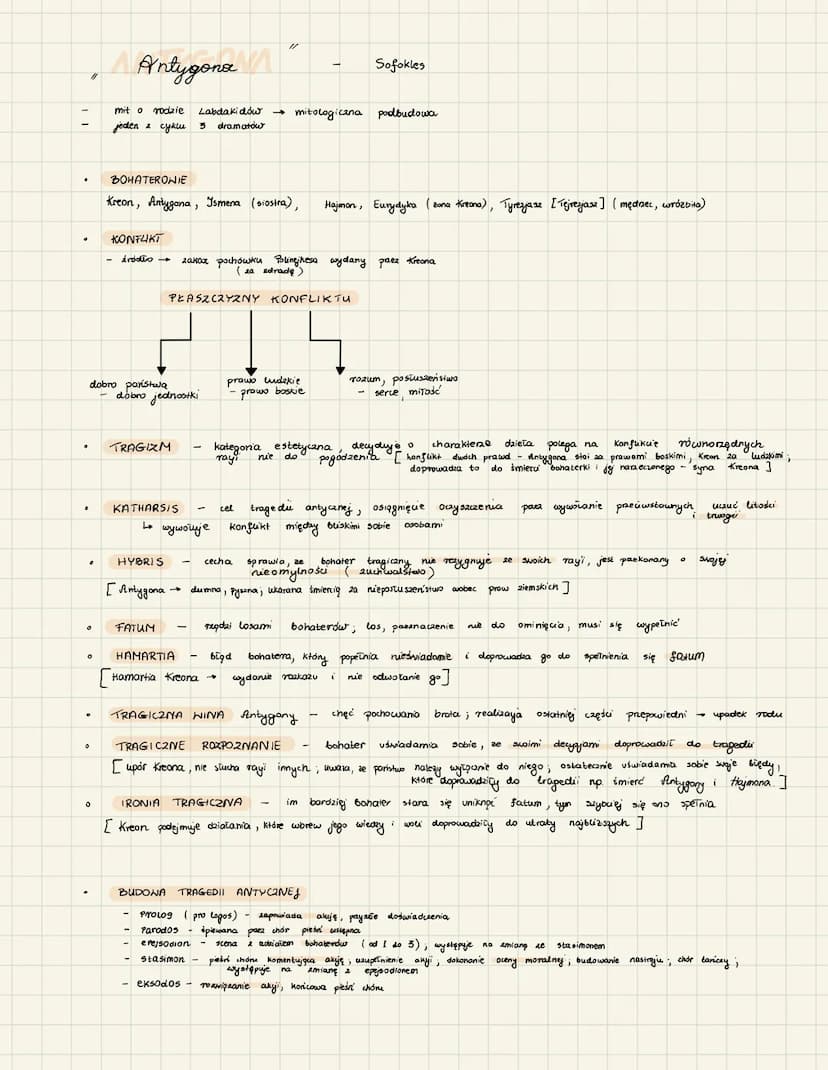 ANTYGONA
„Antygona” - Sofokles
- mit o rodzie Labdakidów → mitologiczna podbudowa
- jeden z cyklu 3 dramatów
• BOHATEROWIE
Kreon, Antygona, Ismena (siostra), Hajmon, Eurydyka (żona Kreona), Tyrezjasz [Tejrezjasz] (mędrzec, wróżbita)
• KONFLIKT
- źródło → zakaz pochówku Polinejkesa wydany przez Kreona
(za zdradę)
PŁASZCZYZNY KONFLIKTU
dobro państwa
- dobro jednostki
prawo ludzkie
- prawo boskie
rozum, posłuszeństwo
- serce, miłość
• TRAGIZM - kategoria estetyczna, decyduje o charakterze dzieła polega na konflikcie równorzędnych
racji nie do pogodzenia [konflikt dwóch prawd - Antygona stoi za prawami boskimi, Kreon za ludzkimi;
doprowadza to do śmierci bohaterki i jej narzeczonego - syna Kreona]
• KATHARSIS - cel tragedii antycznej, osiągnięcie oczyszczenia przez wywołanie przeciwstawnych uczuć litości
i trwogi
↳ wywołuje konflikt między bliskimi sobie osobami
• HYBRIS - cecha sprawia, że bohater tragiczny nie rezygnuje ze swoich racji, jest przekonany o swojej
nieomylności (zuchwalstwo)
[Antygona → dumna, pyszna; ukarana śmiercią za nieposłuszeństwo wobec praw ziemskich]
• FATUM - rządzi losami bohaterów; los, przeznaczenie nie do ominięcia, musi się wypełnić
• HAMARTIA - błąd bohatera, który popełnia nieświadomie i doprowadza go do spełnienia się fatum
[Hamartia Kreona → wydanie rozkazu i nie odwołanie go]
• TRAGICZNA WINA Antygony - chęć pochowania brata; realizacja ostatniej części przepowiedni → upadek rodu
• TRAGICZNE ROZPOZNANIE - bohater uświadamia sobie, że swoimi decyzjami doprowadził do tragedii
[upór Kreona, nie słucha racji innych; uważa, że państwo należy wyłącznie do niego; ostatecznie uświadamia sobie swoje błędy,
które doprowadziły do tragedii np. śmierć Antygony i Hajmona]
• IRONIA TRAGICZNA - im bardziej bohater stara się uniknąć fatum, tym szybciej się ono spełnia
[Kreon podejmuje działania, które wbrew jego wiedzy i woli doprowadziły do utraty najbliższych]
• BUDOWA TRAGEDII ANTYCZNEJ
- prolog (pro logos) - zapowiada akcję, przyszłe doświadczenia
- Parodos - śpiewana przez chór pieśń wstępna
- epejsodion - scena z udziałem bohaterów (od 1 do 5), występuje na zmianę ze stasimonem
- stasimon - pieśń chóru komentująca akcję, uzupełnienie akcji, dokonanie oceny moralnej, budowanie nastroju; chór tańczy;
występuje na zmianę z epejsodionem
- eksodos - rozwiązanie akcji, końcowa pieśń chóru